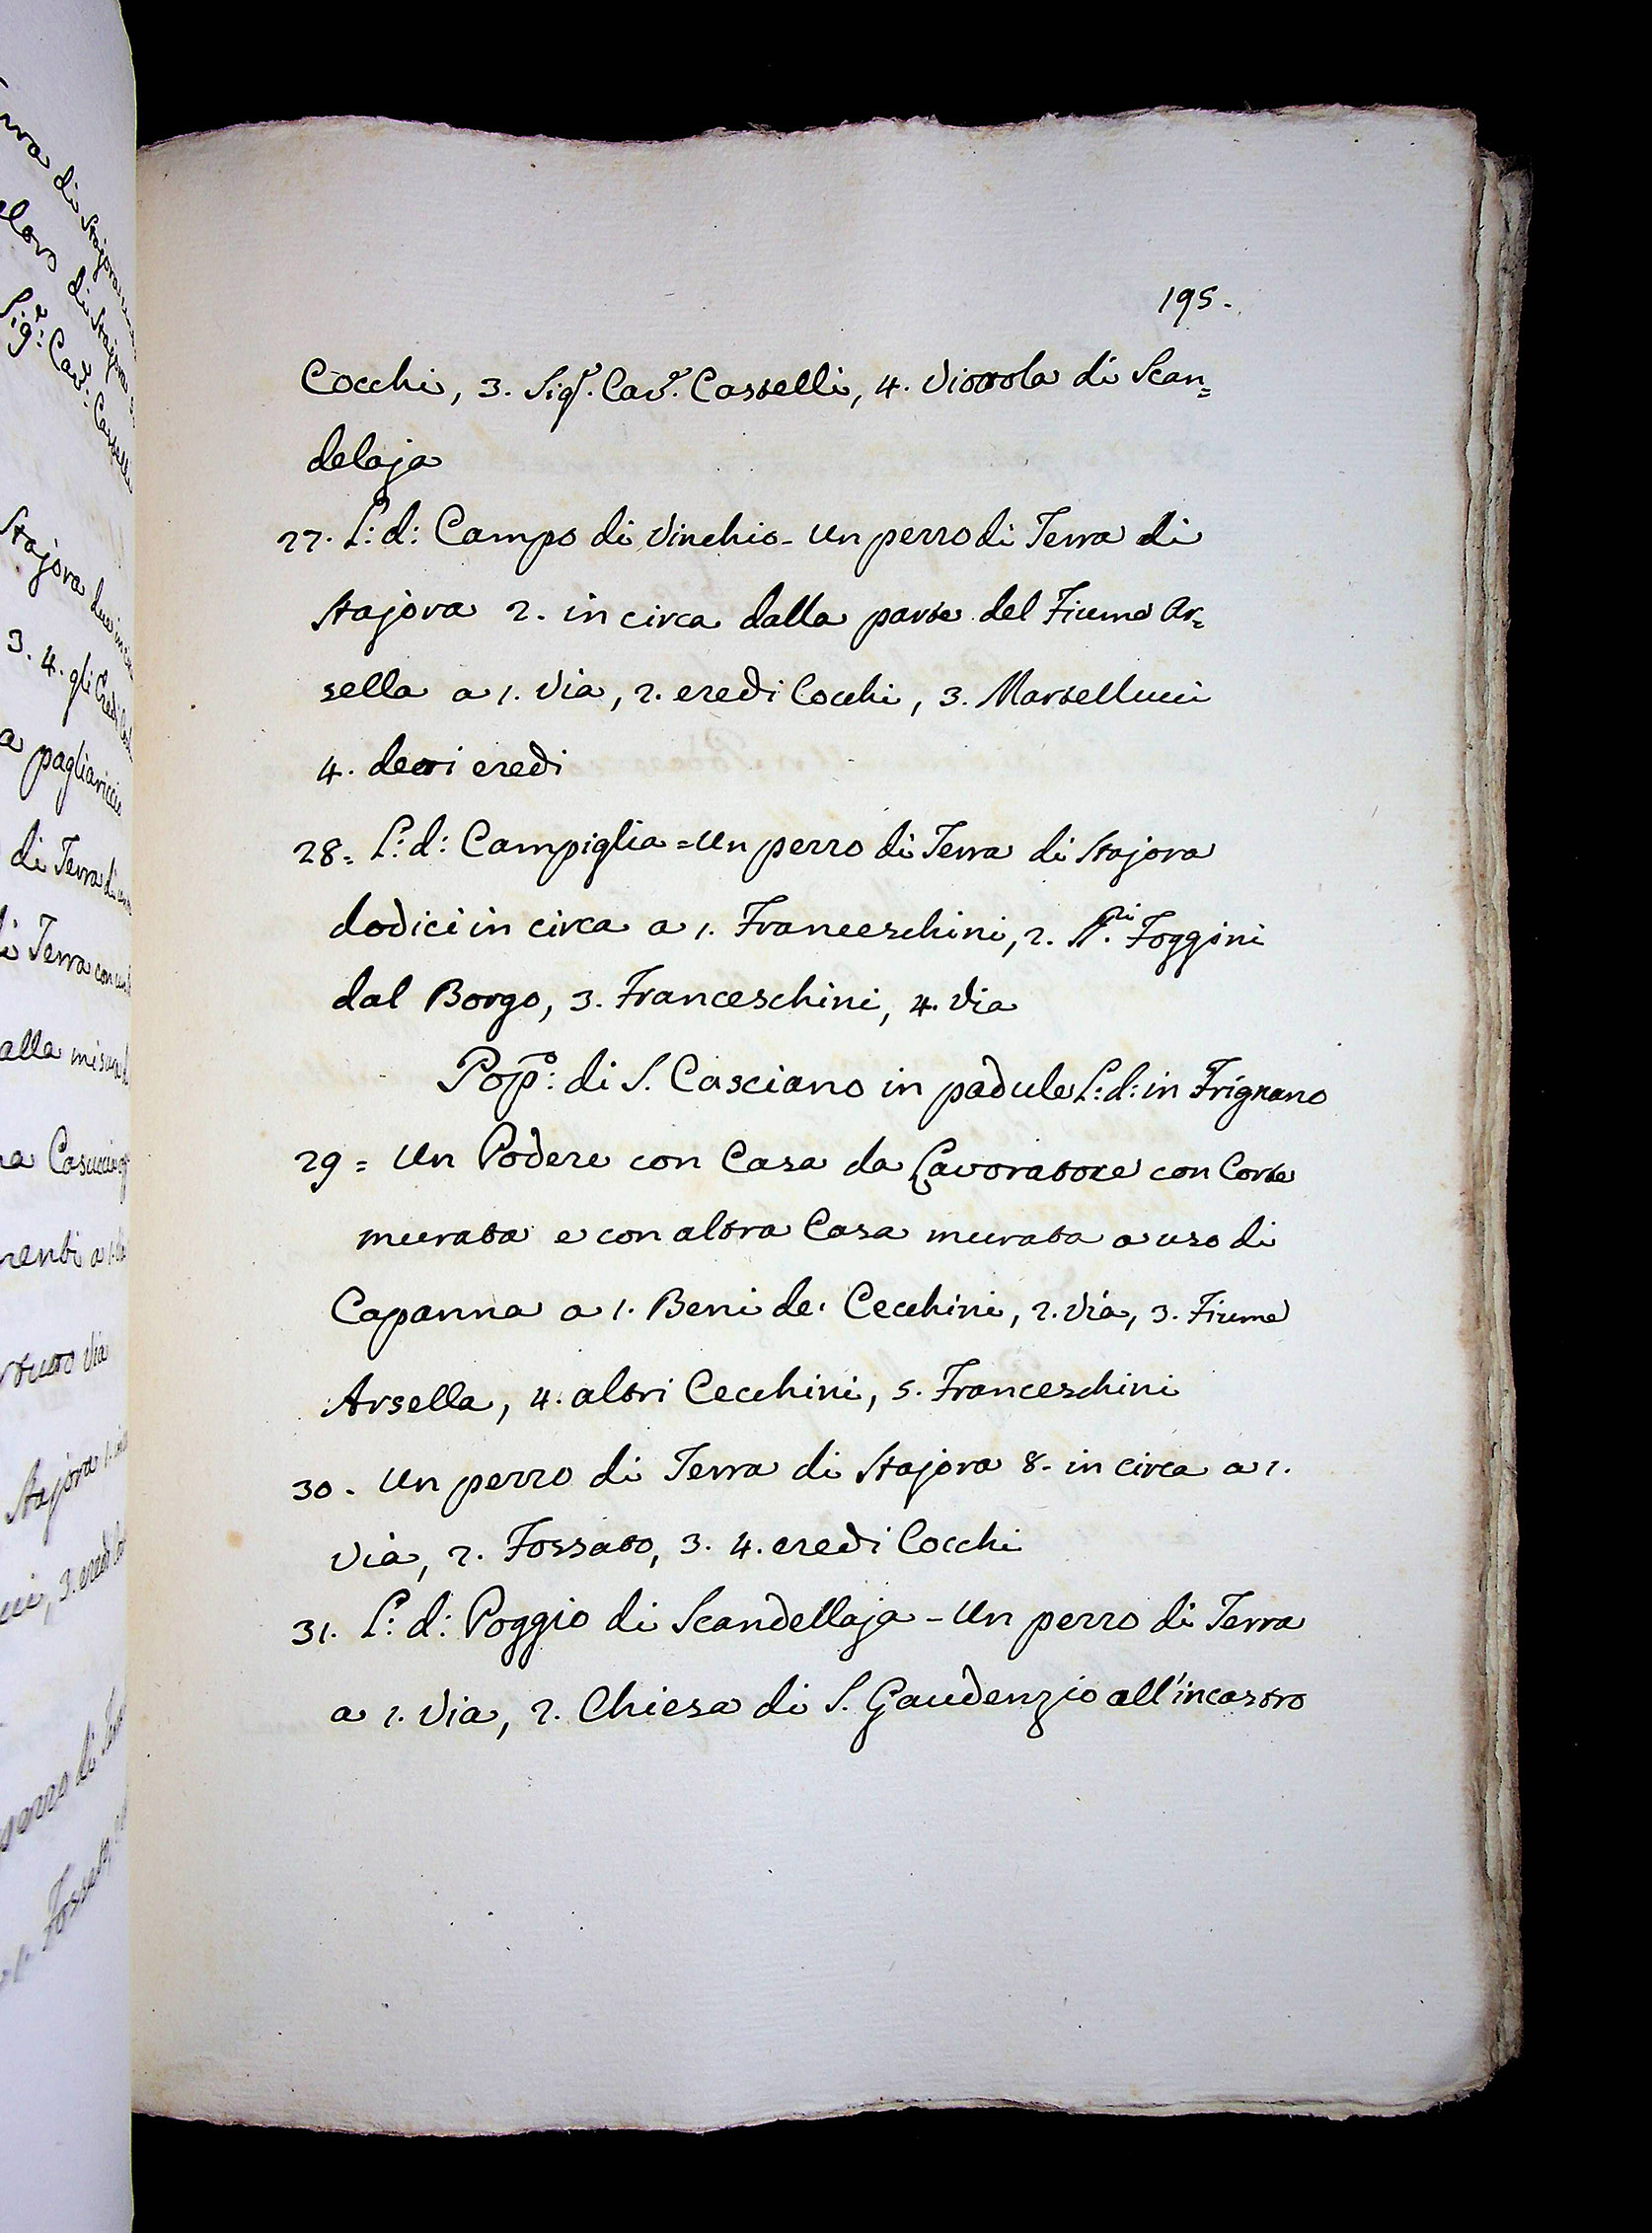 195.
Cocchi, 3. Sig.r Cav.e Casselli, 4. Viottola di Scan=
delaja
27. L: d: Campo di Vinchio - Un pezzo di Terra di
Stajora 2. in circa dalla parte del Fiume Ar=
sella a 1. Via, 2. eredi Cocchi, 3. Martellucci
4. detti eredi
28. L: d: Campiglia = Un pezzo di Terra di Stajora
dodici in circa a 1. Franceschini, 2. SS.ri Foggini
dal Borgo, 3. Franceschini, 4. Via
Pop.o: di S. Casciano in padule L: d: in Frignano
29 = Un Podere con Casa da Lavoratore con Corte
murata e con altra Casa murata a uso di
Capanna a 1. Beni de' Cecchini, 2. Via, 3. Fiume
Arsella, 4. altri Cecchini, 5. Franceschini
30. Un pezzo di Terra di Stajora 8. in circa a 1.
Via, 2. Fossato, 3. 4. eredi Cocchi
31. L: d: Poggio di Scandellaja - Un pezzo di Terra
a 1. Via, 2. Chiesa di S. Gaudenzio all'incastro